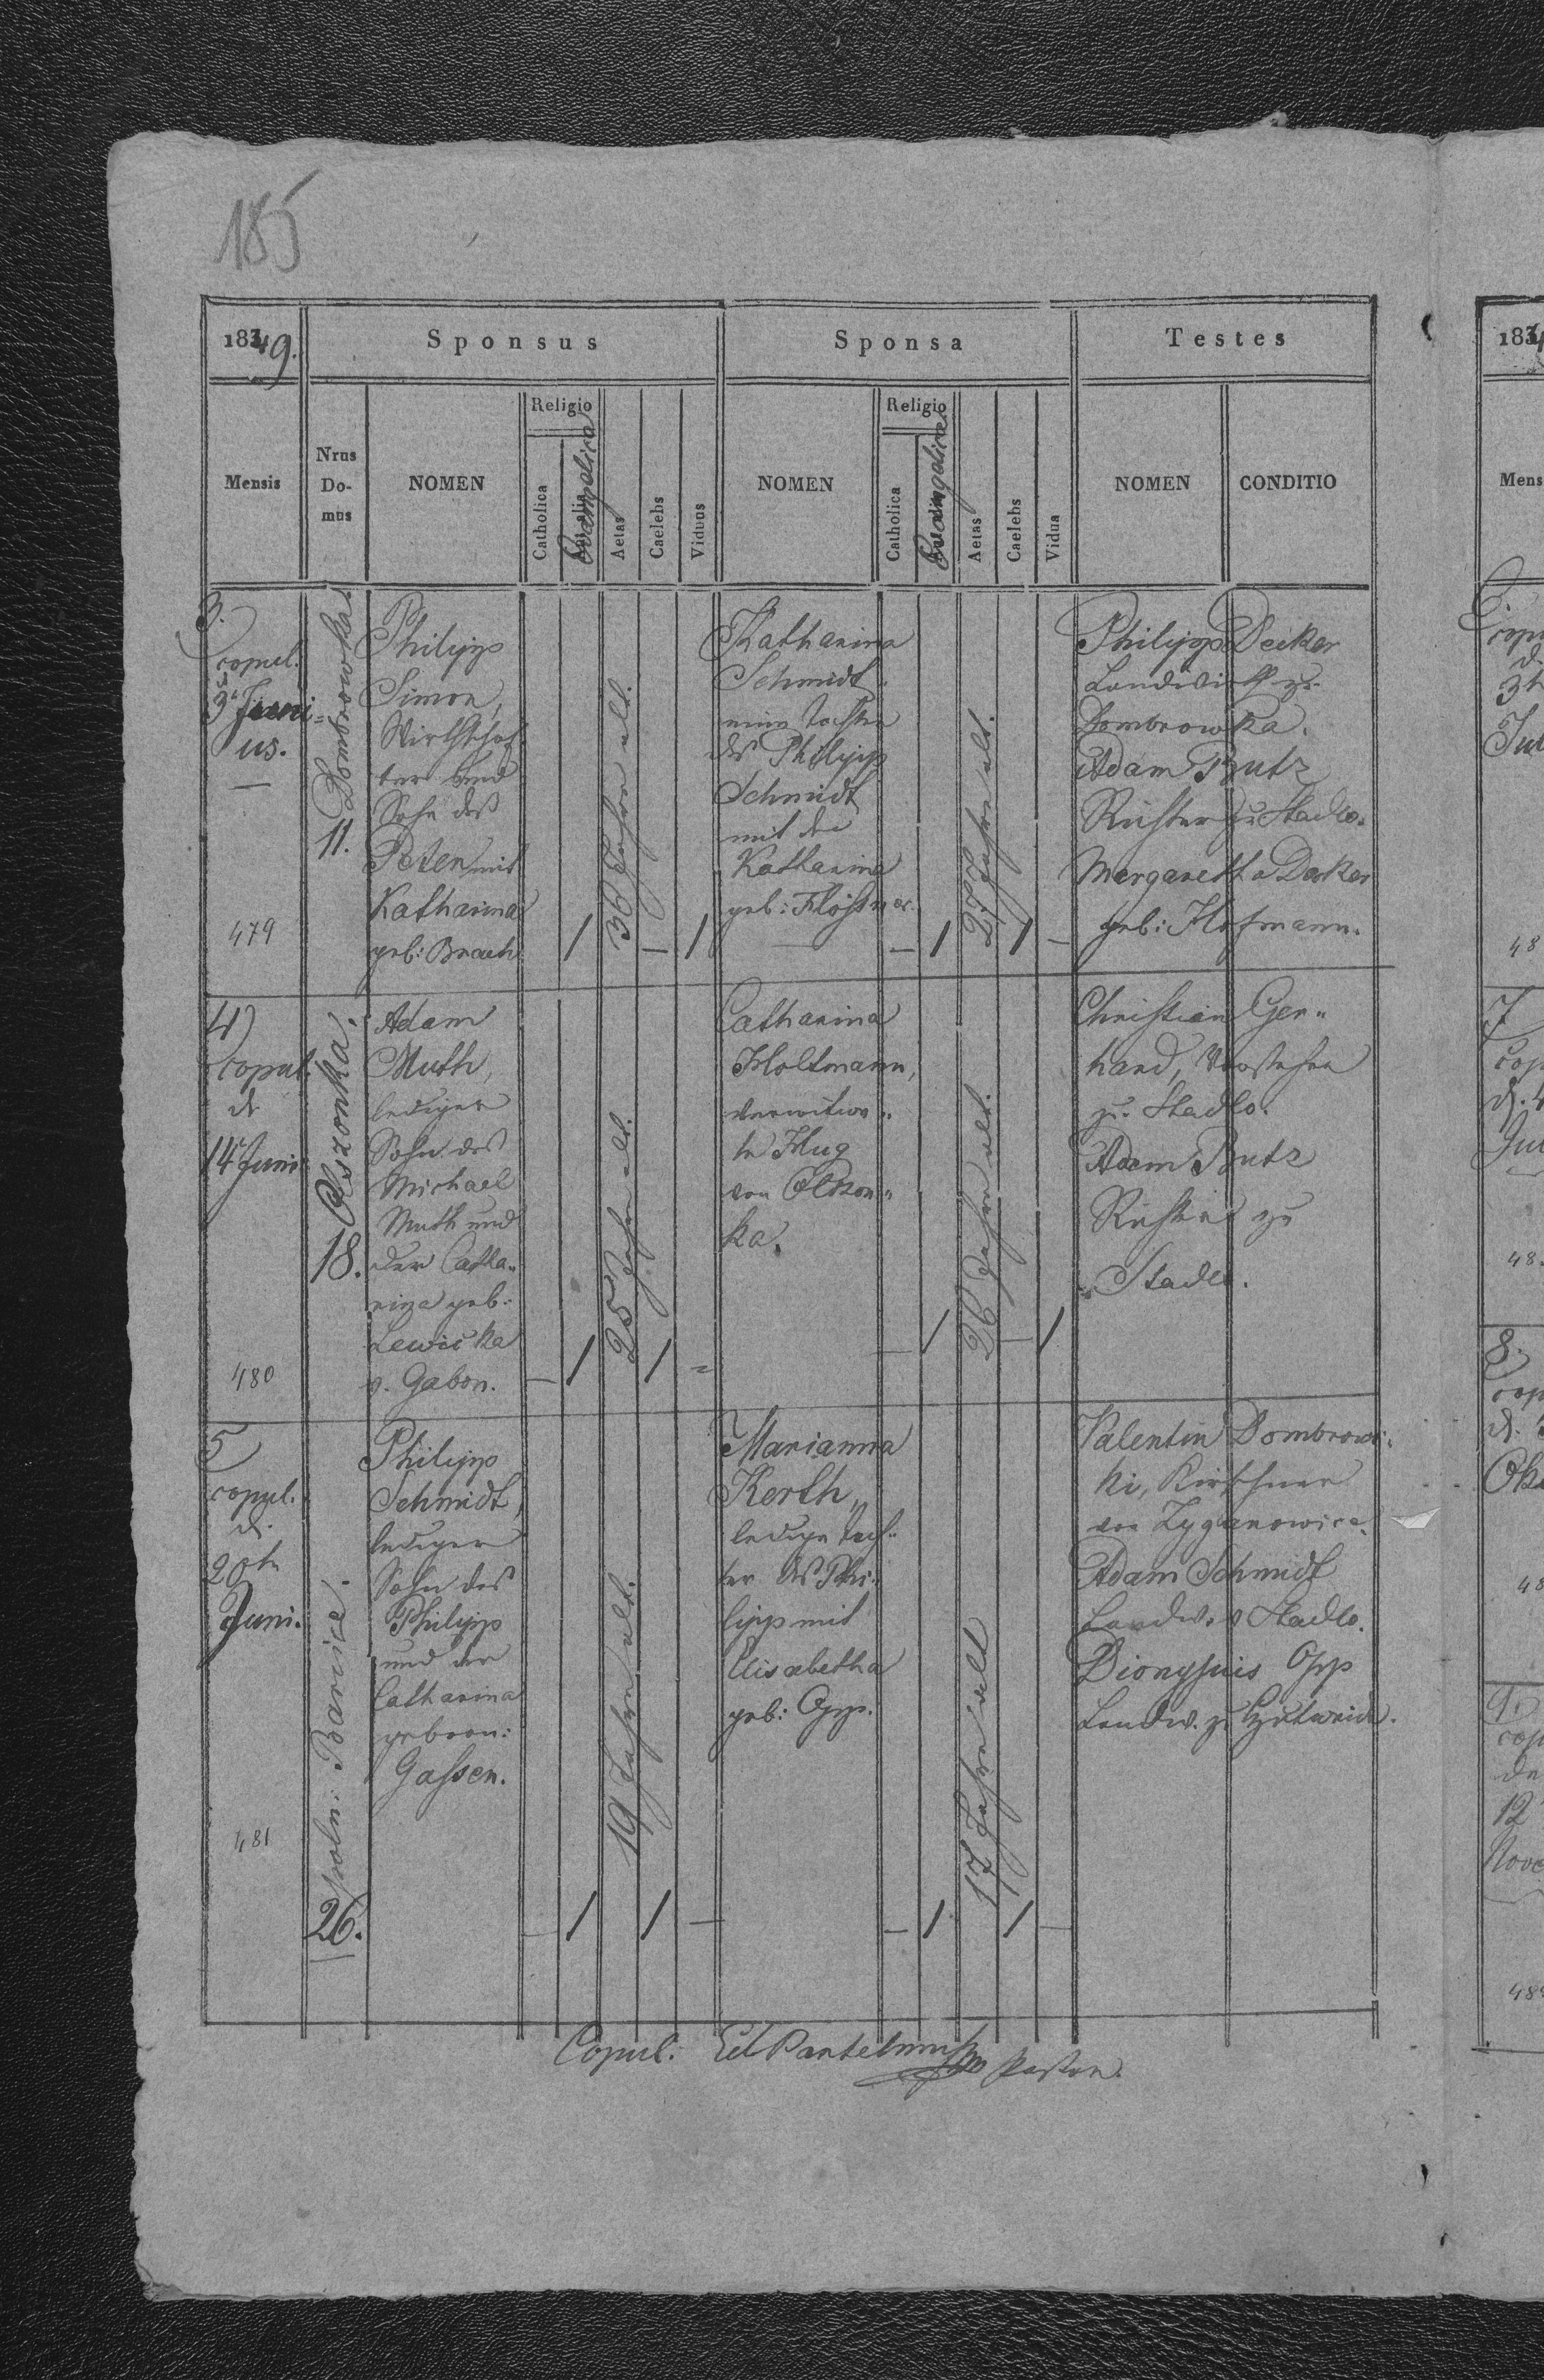 185
1849.
Sponsus
Sponsa
Testes
Mensis
Nrus Do-mus
NOMEN
Religio
Catholica
Evangelica
Aetas
Caelebs
Viduus
NOMEN
Religio
Catholica
Evangelica
Aetas
Caelebs
Vidua
NOMEN
CONDITIO
3.
copul.
3t Juni=
us.
—
479
Dombrowka
11.
Philipp
Simon,
Wirthschaf
ter und
Sohn des
Peter mit
Katharina
geb: Brach
/
36 Jahre alt.
—
/
Katharina
Schmidt.
eine Tochter
des Philipp
Schmidt
mit der
Katharina
geb: Flössner
—
/
27 Jahre alt.
/
—
Philipp Decker
Landwirth zu
Dombrowka.
Adam Butz
Richter zu Stadlo.
Margaretha Decker
geb: Hofmann.
4)
copul.
d.
14t Juni
480
Olszonka.
18.
Adam
Muth,
lediger
Sohn des
Michael
Muth und
der Catha„
rina geb:
Lewicka
v. Gabon.
—
/
25 Jahre alt.
/
=
Catharina
Holtmann,
verwitwe„
te Hug
von Olszon„
ka.
—
/
26 Jahre alt.
—
/
Christian Ger„
hard, Vorsteher
zu Stadlo.
Adam Butz
Richter zu
Stadlo.
5
copul.
d.
20te
Juni.
481
poln: Barice.
26.
Philipp
Schmidt,
lediger
Sohn des
Philipp
und der
Catharina
geborn:
Gassen.
—
/
19 Jahre alt.
/
—
Marianna
Kerth,
ledige Toch„
ter des Phi„
lipp mit
Elisabetha
geb: Opp.
—
/
17 Jahre alt
/
—
Valentin Dombrows„
ki, Kirschner
von Zyganowice.
Adam Schmidt
Landw. v Stadlo.
Dionysius Opp
Landw. zu
Copul: Ed Pastor.
183
Mens
copu
d.
3t
Jul
48
7
cop
d. 4
Ju
48
8.
cop
d.
Okt
48
9.
cop
de
12
Nove
48